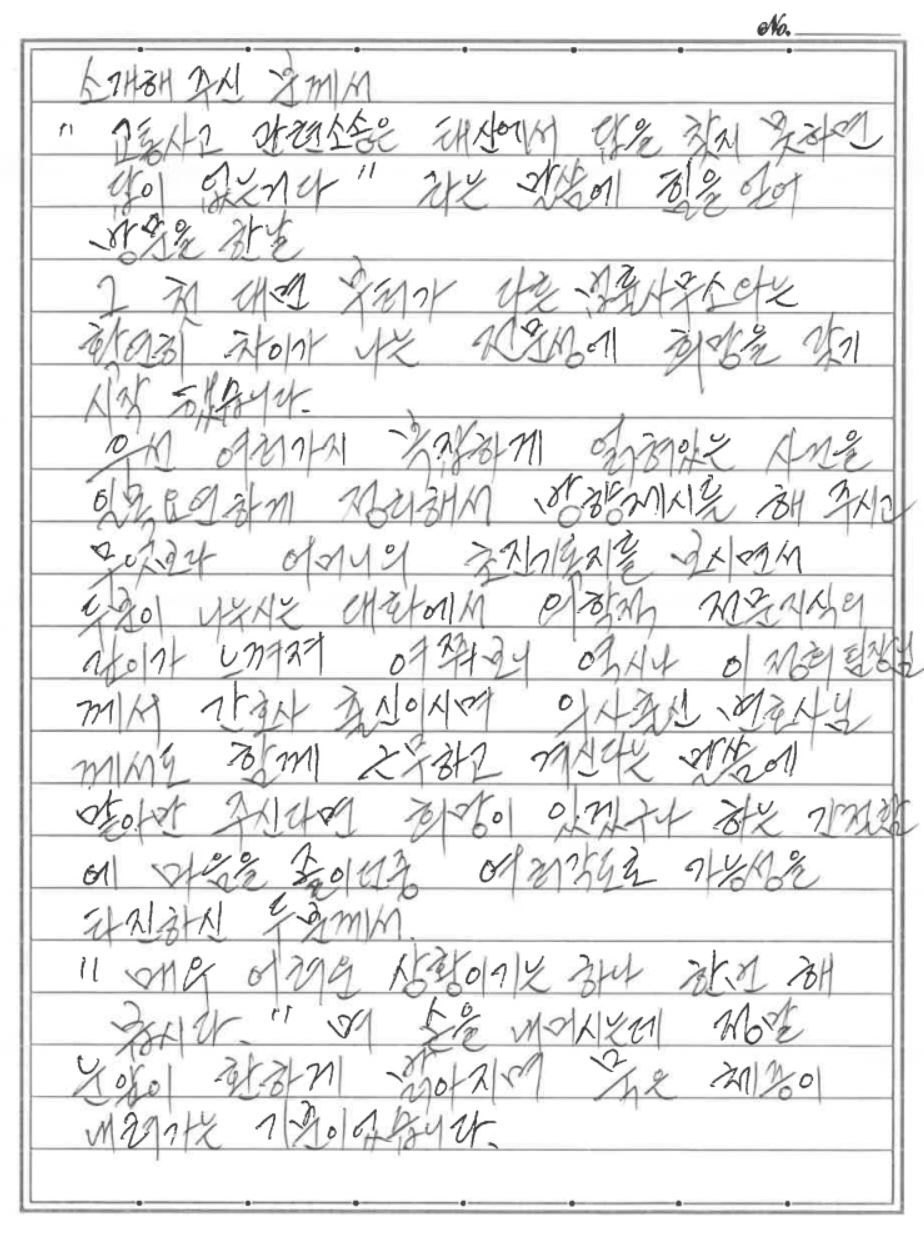 No.
소개해 주신 분께서
" 교통사고 관련소송은 태산에서 답을 찾지 못하면
답이 없는거다 " 라는 말씀에 힘을 얻어
방문을 한날
그 첫 대면 부터가 다른 법률사무소와는
확연히 차이가 나는 전문성에 희망을 갖기
시작 했습니다.
우선 여러가지 복잡하게 얽혀있는 사건을
일목요연하게 정리해서 방향제시를 해 주시고
무엇보다 어머니의 초진기록지를 보시면서
두분이 나누시는 대화에서 의학적 전문지식의
깊이가 느껴져 여쭤보니 역시나 이정희팀장님
께서 간호사 출신이시며 의사출신 변호사님
께서도 함께 근무하고 계신다는 말씀에
맡아만 주신다면 희망이 있겠구나 하는 간절함
에 마음을 졸이던중 여러각도로 가능성을
타진하신 두분께서.
" 매우 어려운 상황이기는 하나 한번 해
봅시다. " 며 손을 내미시는데 정말
눈앞이 환하게 밝아지며 묵은 체증이
내려가는 기분이었습니다.